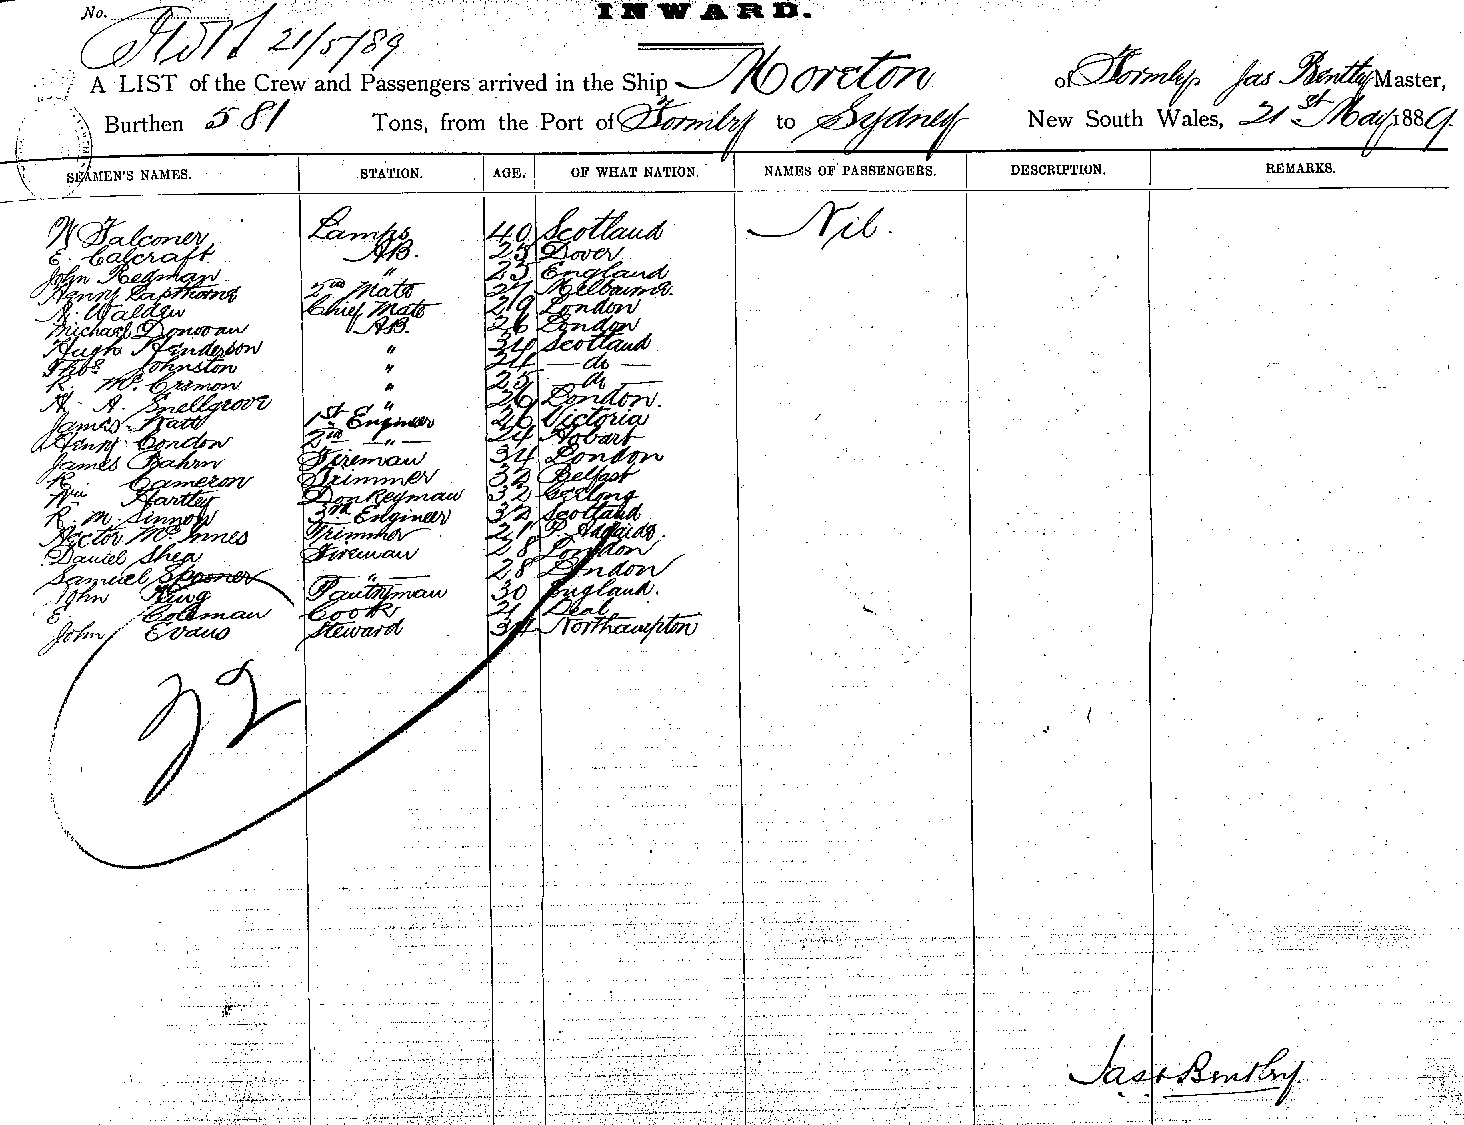 INWARD.
No.
21/5/89
A LIST of the Crew and Passengers arrived in the Ship Moreton of Formby Jas Bentley Master,
Burthen 581 Tons, from the Port of Formby to Sydney New South Wales, 21st May 1889.
SEAMEN'S NAMES. STATION. AGE. OF WHAT NATION. NAMES OF PASSENGERS. DESCRIPTION. REMARKS.
W Falconer Lamps 40 Scotland Nil.
E. Calcraft A.B. 25 Dover
John Redman " 25 England
Henry Lapthorne 2nd Mate 27 Melbourne.
Walden Chief Mate 29 London
Michael Donovan A.B. 26 London
Hugh Henderson " 34 Scotland
Thos Johnston " 24 — do —
R. Mc Crimon " 25 — do —
H. A. Snellgrove " 26 London.
James 1st Engineer 26 Victoria
Henry Condon 2nd — " — 24 Hobart
James Bahrn Fireman 34 London
R. Cameron Trimmer 32 Belfast
Wm Hartley Donkeyman 32 Geelong
R. M. Sinnow 3rd Engineer 32 Scotland
Hector McInnes Trimmer 21 P. Adelaide.
Daniel Shea Fireman 28 London
Samuel Spooner — " — 28 London
John King Pantryman 30 England.
E Coleman Cook 21 Deal
John Evans Steward 34 Northampton
22
Jas Bentley